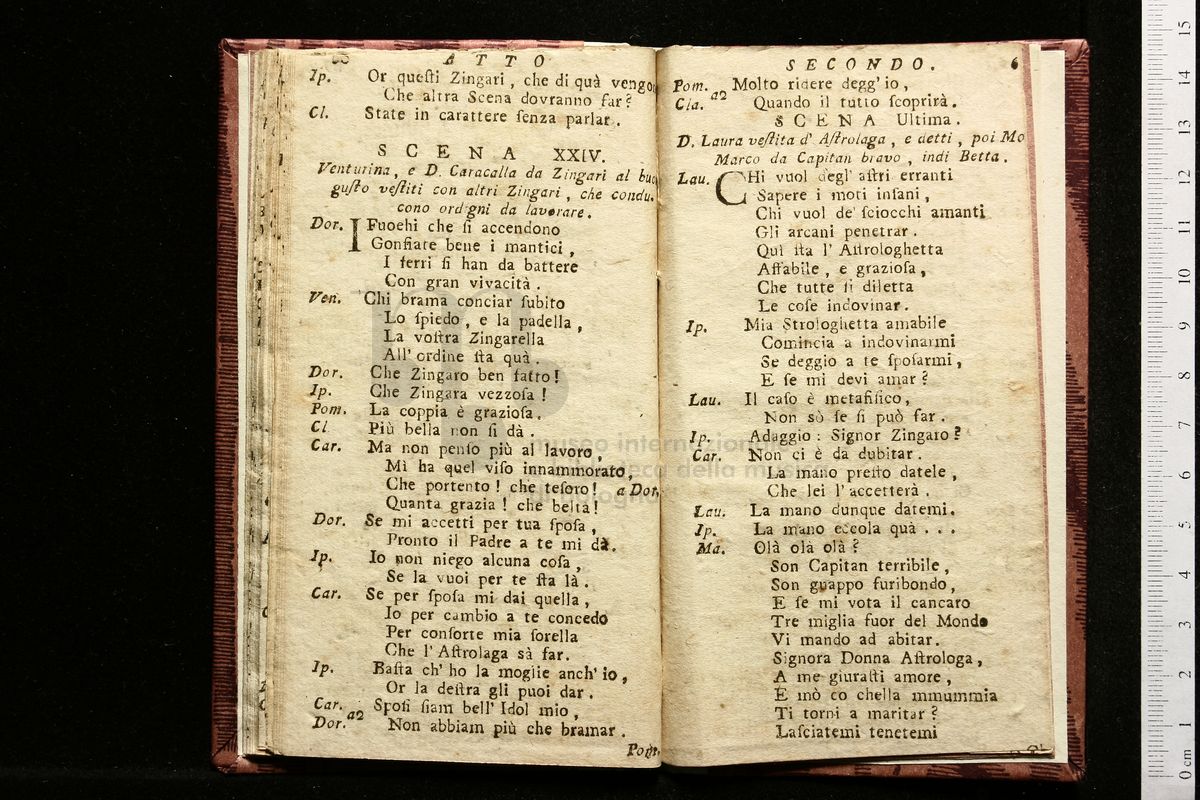 ATTO
Ip. Or queſti Zingari, che di quà vengo
Che altra Scena dovranno far?
Cl. State in carattere ſenza parlar.
SCENA XXIV.
Venturina, e D. Caracalla da Zingari al buo
guſto veſtiti con altri Zingari, che condu.
cono ordigni da lavorare.
Dor. I Fuoehi che ſi accendono
Gonfiate bene i mantici,
I ferri ſi han da battere
Con gran vivacità.
Ven. Chi brama conciar ſubito
Lo ſpiedo, e la padella,
La voſtra Zingarella
All' ordine ſta quà.
Dor. Che Zingaro ben fatto!
Ip. Che Zingara vezzoſa!
Pom. La coppia è grazioſa.
Cl Più bella non ſi dà.
Car. Ma non penſo più al lavoro,
Mì ha quel viſo innammorato,
Che portento! che teſoro! a Dor.
Quanta grazia! che beltà!
Dor. Se mi accetti per tua ſpoſa,
Pronto il Padre a te mi dà.
Ip. Io non niego alcuna coſa,
Se la vuoi per te ſta là.
Car. Se per ſpoſa mi dai quella,
Io per cambio a te concedo
Per conſorte mia ſorella
Che l' Aſtrolaga sà far.
Ip. Baſta ch' ho la moglie anch' io,
Or la deſtra gli puoi dar.
Car. a2 Spoſi ſiam bell' Idol mio,
Dor. Non abbiam più che bramar.
Pom.
SECONDO. 6
Pom. a2 Molto ridere degg' io,
Cla. Quando il tutto ſcoprirà.
SCENA Ultima.
D. Laura veſtita d' Aſtrolaga, e detti, poi Mo
Marco da Capitan bravo, indi Betta.
Lau. CHi vuol degl' aſtri erranti
Sapere i moti inſani,
Chi vuol de' ſciocchi amanti
Gli arcani penetrar.
Quì ſta l' Aſtrologhetta
Affabile, e grazioſa,
Che tutte ſi diletta
Le coſe indovinar.
Ip. Mia Strologhetta amabile
Comincia a indovinarmi
Se deggio a te ſpoſarmi,
E ſe mi devi amar?
Lau. Il caſo è metafiſico,
Non sò ſe ſi può far.
Ip. Adaggio: Signor Zingaro?
Car. Non ci è da dubitar.
La mano preſto datele,
Che lei l' accetterà.
Lau. La mano dunque datemi.
Ip. La mano eccola quà . . .
Ma. Olà olà olà?
Son Capitan terribile,
Son guappo furibondo,
E ſe mi vota il cancaro
Tre miglia fuor del Mondo
Vi mando ad abitar.
Signora Donna Aſtrologa,
A me giuraſti amore,
E mò co chella mmummia
Ti torni a maritar?
Laſciatemi tenetemi
museo internazionale
biblioteca della musica
di bologna
0 cm 1 2 3 4 5 6 7 8 9 10 11 12 13 14 15